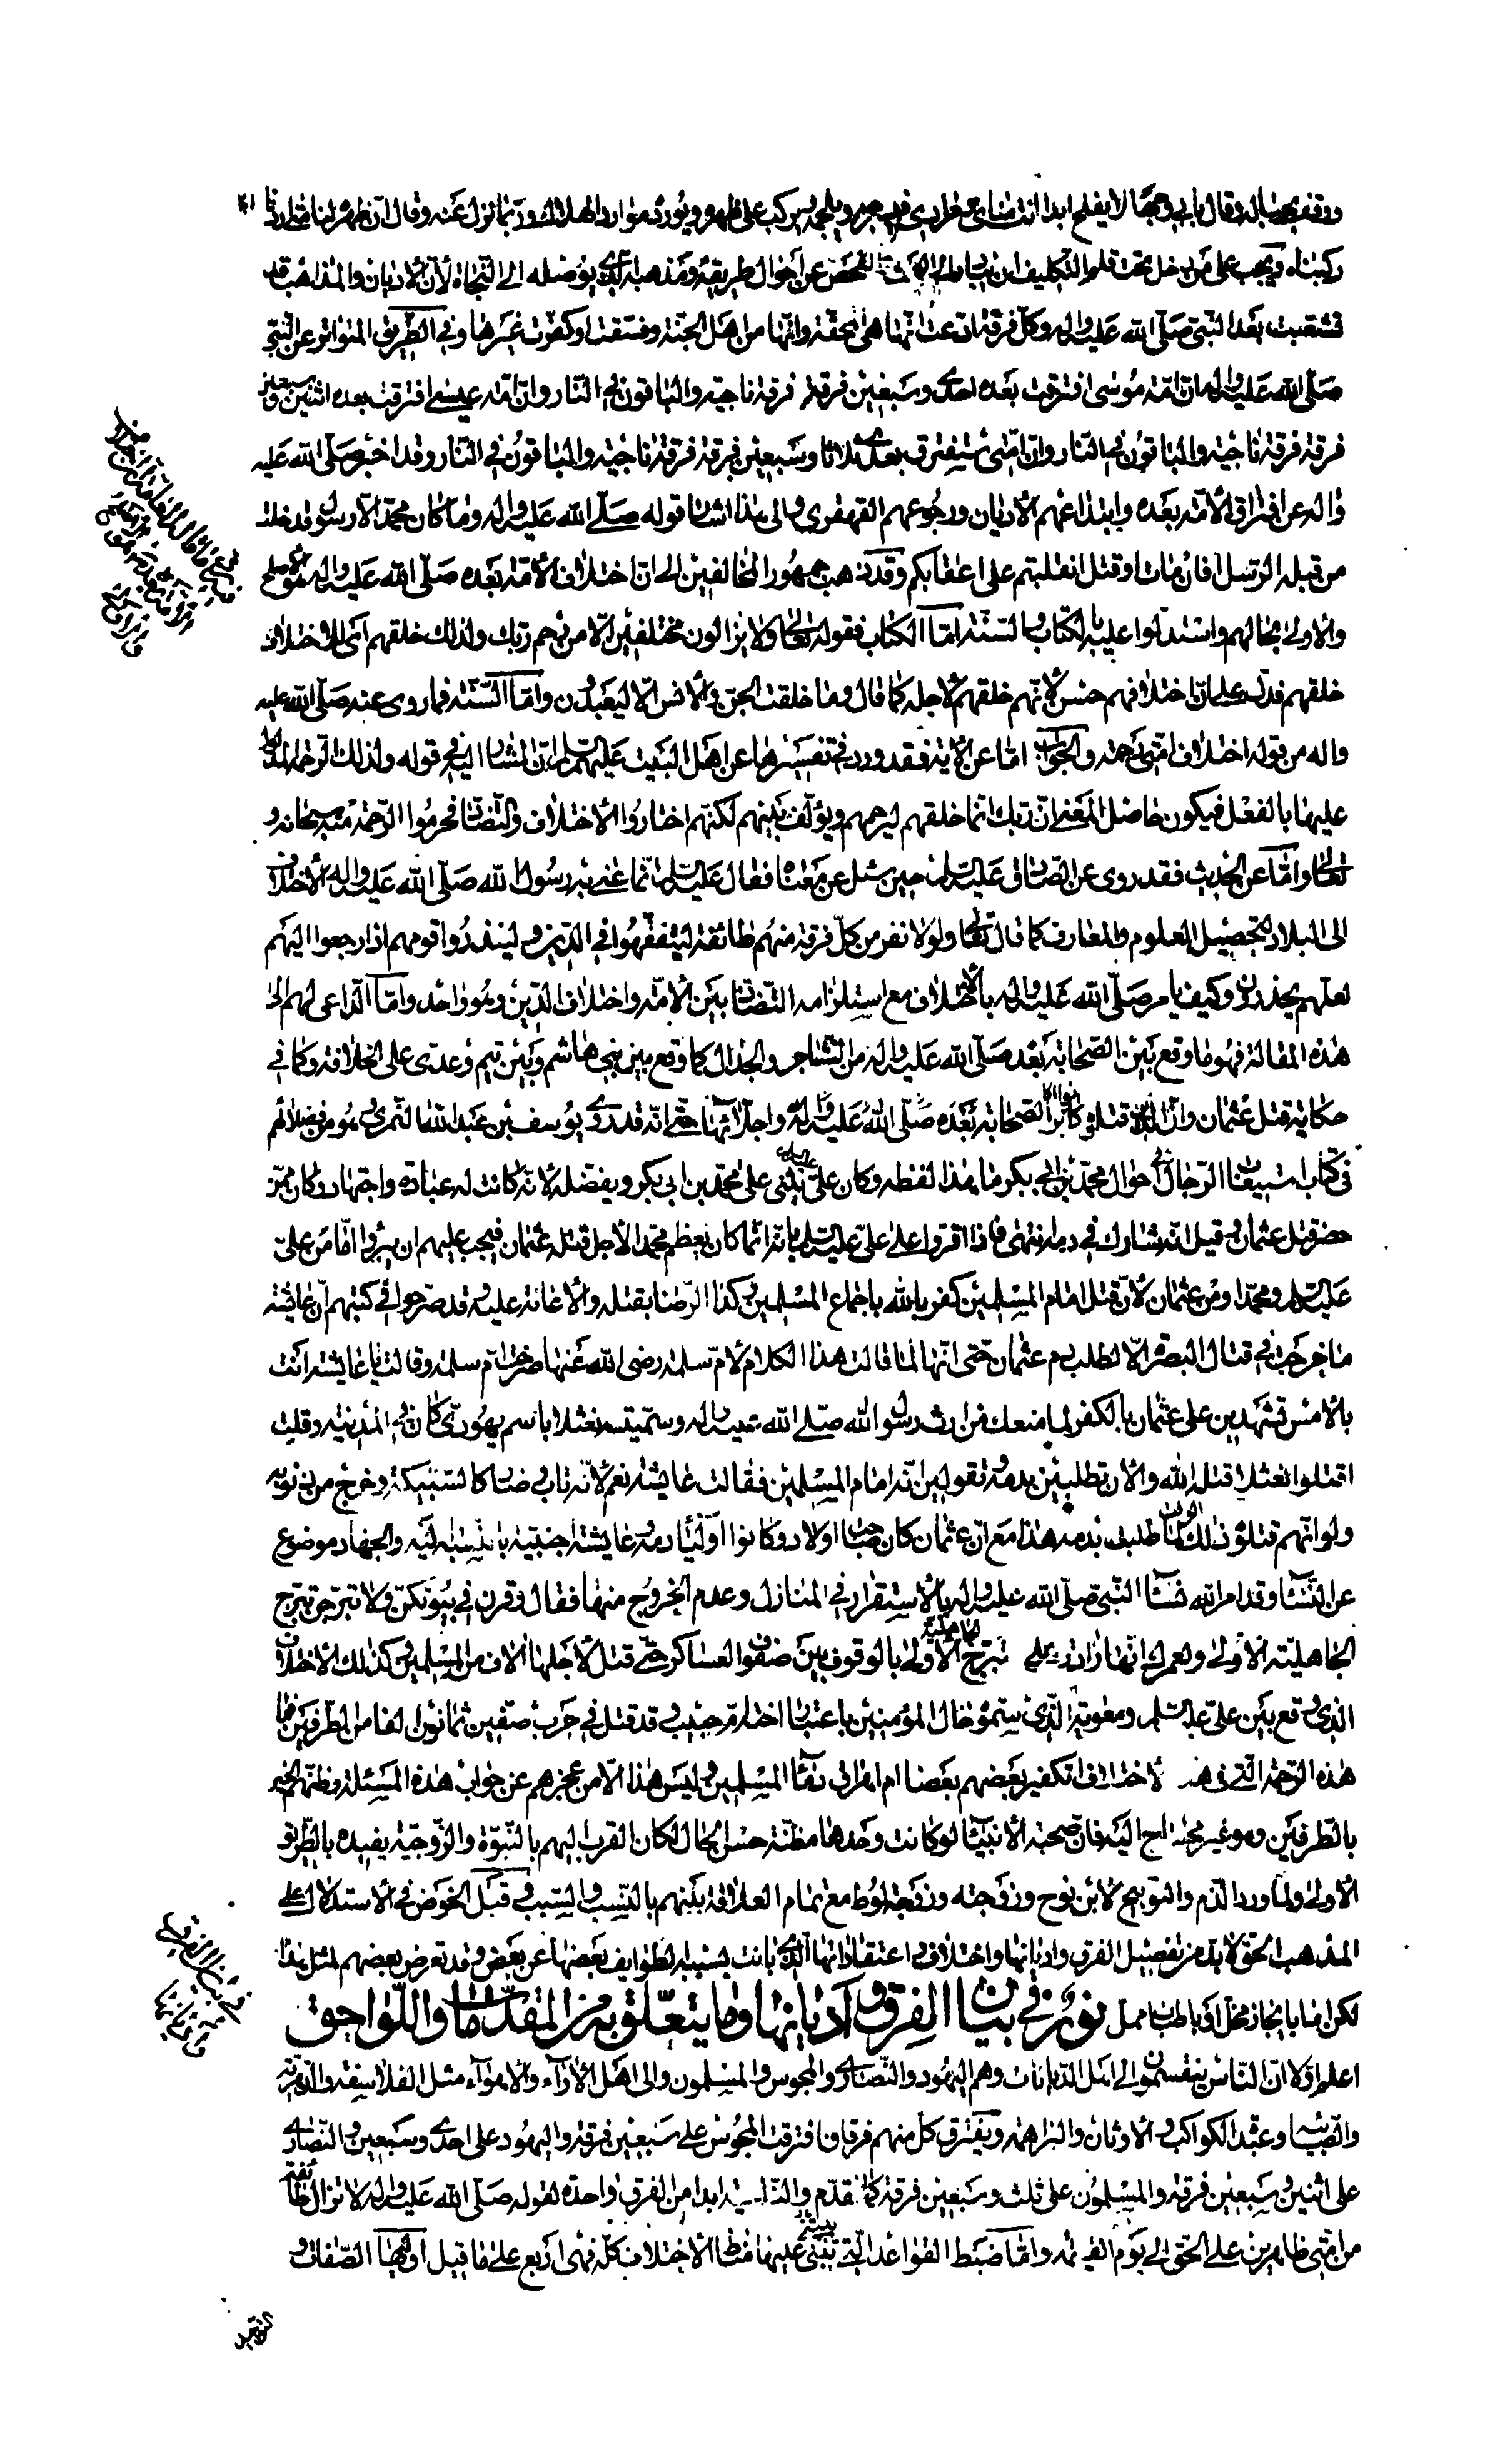 ووقف بحياله وقال يا ابا لا يفلح ابدا انت مناي ويورده موارد الهلاك وربما نزل عنه وقال الآن ظهر لنا متى اردنا
ركبناه ويجب على من دخل تحت قلم التكليف ان الفحص عن احوال طريقه ومذهبه الذي يوصله الى النجاة لأن الأديان والمذاهب قد
تشعبت بعد النبي صلى الله عليه واله وكل فرقة ادعت انها هي المحقة وانها من اهل الجنة وفسقت او كفرت غيرها وفي الطريق المتواتر عن النبي
صلى الله عليه واله ان امة موسى افترقت بعده احدى وسبعين فرقة فرقة ناجية والباقون في النار وان امة عيسى افترقت بعده اثنين وسبعين
فرقة فرقة ناجية والباقون في النار وان امتي ستفترق بعدي ثلاثا وسبعين فرقة فرقة ناجية والباقون في النار وقد اخبر صلى الله عليه
واله عن افتراق الأمة بعده وابتداعهم الأديان ورجوعهم القهقرى والى هذا اشار قوله صلى الله عليه واله وما كان محمد الا رسول قد خلت
من قبله الرسل افان مات او قتل انقلبتم على اعقابكم وقد ذهب جمهور المخالفين الى ان اختلاف الأمة بعده صلى الله عليه واله هو الأصلح
والاولى بحالهم واستدلوا عليه بالكتاب والسنة اما الكتاب فقوله تعالى ولا يزالون مختلفين الا من رحم ربك ولذلك خلقهم اي للاختلاف
خلقهم فدل على ان اختلافهم حسن لأنهم خلقهم لأجله كما قال وما خلقت الجن والأنس الا ليعبدون واما السنة فما روي عنه صلى الله عليه
واله من قوله اختلاف امتي رحمة والجواب اما عن الآية فقد ورد في تفسيرها عن اهل البيت عليهم السلم ان المشار اليه في قوله ولذلك الرحمة المدلول
عليها بالفعل فيكون حاصل المعنى ان ربك انما خلقهم ليرحمهم ويؤلف بينهم لكنهم اختاروا الأختلاف والتضاد فحرموا الرحمة منه سبحانه و
تعالى واما عن الحديث فقد روي عن الصادق عليه السلم حين سئل عن معناه فقال عليه السلم انما عنى به رسول الله صلى الله عليه واله الأختلاف
الى البلاد لتحصيل العلوم والمعارف كما قال تعالى ولولا نفر من كل فرقة منهم طائفة ليتفقهوا في الدين ولينذروا قومهم اذا رجعوا اليهم
لعلهم يحذرون وكيف يأمر صلى الله عليه واله بالأختلاف مع استلزامه التضاد بين الأمة واختلاف الدين وهو واحد واما الداعي لهم الى
هذه المقالة فهو ما وقع بين الصحابة بعد صلى الله عليه واله من التشاجر والجدال كما وقع بين بني هاشم وبين تيم وعدي على الخلافة وكما في
حكاية قتل عثمان وان الذين قتلوه كانوا اكابر الصحابة بعده صلى الله عليه واله واجلائها حتى انه قد روى يوسف بن عبد الله النمري وهو من فضلائهم
في كتاب استيعاب الرجال في احوال محمد بن ابي بكر ما هذا لفظه وكان علي عليه السلم يثني على محمد بن ابي بكر ويفضله لأنه كانت له عبادة واجتهاد وكان ممن
حضر قتل عثمان وقيل انه شارك في دمه انتهى فاذا اقروا على علي عليه السلم بانه انما كان يعظم محمدا لأجل قتله عثمان فيجب عليهم ان يبرؤا اما من علي
عليه السلم ومحمد او من عثمان لأن قتل امام المسلمين كفر بالله باجماع المسلمين وكذا الرضا بقتله والأعانة عليه وقد صرحوا في كتبهم ان عايشة
ما خرجت في قتال البصرة الا لطلب دم عثمان حتى انها لما قالت هذا الكلام لأم سلمة رضى الله عنها صرخت ام سلمة وقالت يا عايشة انت
بالأمس تشهدين على عثمان بالكفر لما منعك من ارث رسول الله صلى الله عليه واله وسميتيه نعثلا باسم يهودي كان في المدينة وقلت
اقتلوا نعثلا قتله الله والان تطلبين بدمه وتقولين انه امام المسلمين فقالت عايشة نعم لأنه تاب وصار كالسبيكة وخرج من ذنوبه
ولو انهم قتلوه ذلك الوقت لما طلبت بدمه هذا مع ان عثمان كان صاحب اولاد وكانوا اولياء دمه وعايشة اجنبية بالنسبة اليه والجهاد موضوع
عن النساء وقد امر الله نساء النبي صلى الله عليه واله بالأستقرار في المنازل وعدم الخروج منها فقال وقرن في بيوتكن ولا تبرجن تبرج
الجاهلية الأولى ولعمرك انها زادت على تبرج الجاهلية الأولى بالوقوف بين صفوف العساكر حتى قتل لأجلها الاف من المسلمين وكذلك الأختلاف
الذي وقع بين علي عليه السلم ومعوية الذي سموه خال المؤمنين باعتبار اخته ام حبيبة وقد قتل في حرب صفين ثمانون الفا من الطرفين فما
هذه الرحمة التي في هذه الأختلاف اتكفير بعضهم بعضا ام اهراق دماء المسلمين وليس هذا الا من عجزهم عن جواب هذه المسئلة وظنهم الخير
بالطرفين وهو غير محتاج اليه فان صحبة الأنبياء لو كانت وحدها مظنة حسن الحال لكان القرب اليهم بالنبوة والزوجية يفيده بالطريق
الأولى ولما ورد الذم والتوبيخ لابن نوح وزوجته وزوجة لوط مع تمام العلاقة بينهم بالنسب والسبب وقبل الخوض في الأستدلال على
المذهب الحق لا بد من تفصيل الفرق واديانها واختلاف اعتقاداتها الذي بانت بسببه الطوايف بعضها عن بعض وقد تعرض بعضهم لمثل هذا
لكن اما بايجاز مخل او باطناب ممل نور في بيان الفرق واديانها وما يتعلق به من المقدمات واللواحق
اعلم اولا ان الناس ينقسمون الى اهل الديانات وهم اليهود والنصارى والمجوس والمسلمون والى اهل الأراء والأهواء مثل الفلاسفة والدهرية
والصابئة وعبدة الكواكب والأوثان والبراهمة ويفترق كل منهم فرقا فافترقت المجوس على سبعين فرقة واليهود على احدى وسبعين والنصارى
على اثنين وسبعين فرقة والمسلمون على ثلث وسبعين فرقة كما تقدم والناجية ابدا من الفرق واحدة لقوله صلى الله عليه واله لا تزال طائفة
من امتي ظاهرين على الحق الى يوم القيمة واما ضبط القواعد التي يبتنى عليها مناط الأختلاف كله فهي اربع على ما قيل اولها الصفات و